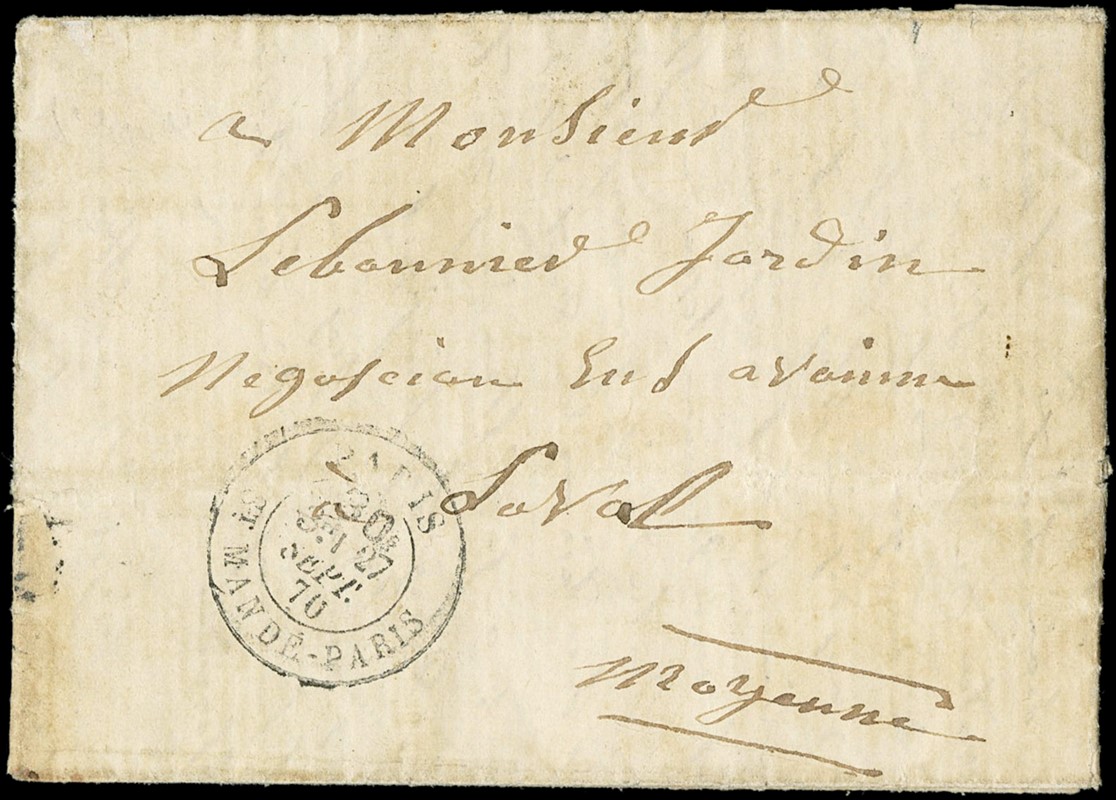 a Monsieur
Lebonnier Jardin
Negoscian en avoinne
a Laval
Moyenne
PARIS
ST MANDÉ-PARIS
27
SEPT.
70